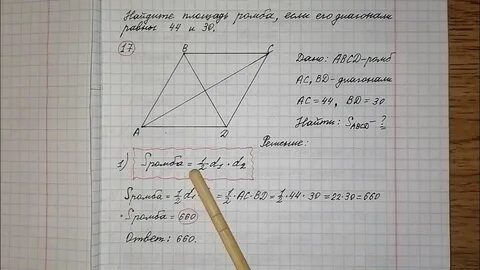 Найдите площадь ромба, если его диагонали
равны 44 и 30.
17
B
C
A
D
Дано: ABCD-ромб
AC, BD-диагонали
AC=44, BD=30
Найти: SABCD-?
Решение:
1) Sромба = 1/2 d1 · d2
Sромба = 1/2 d1 = 1/2 · AC·BD = 1/2 · 44 · 30 = 22·30 = 660
Sромба = 660
Ответ: 660.